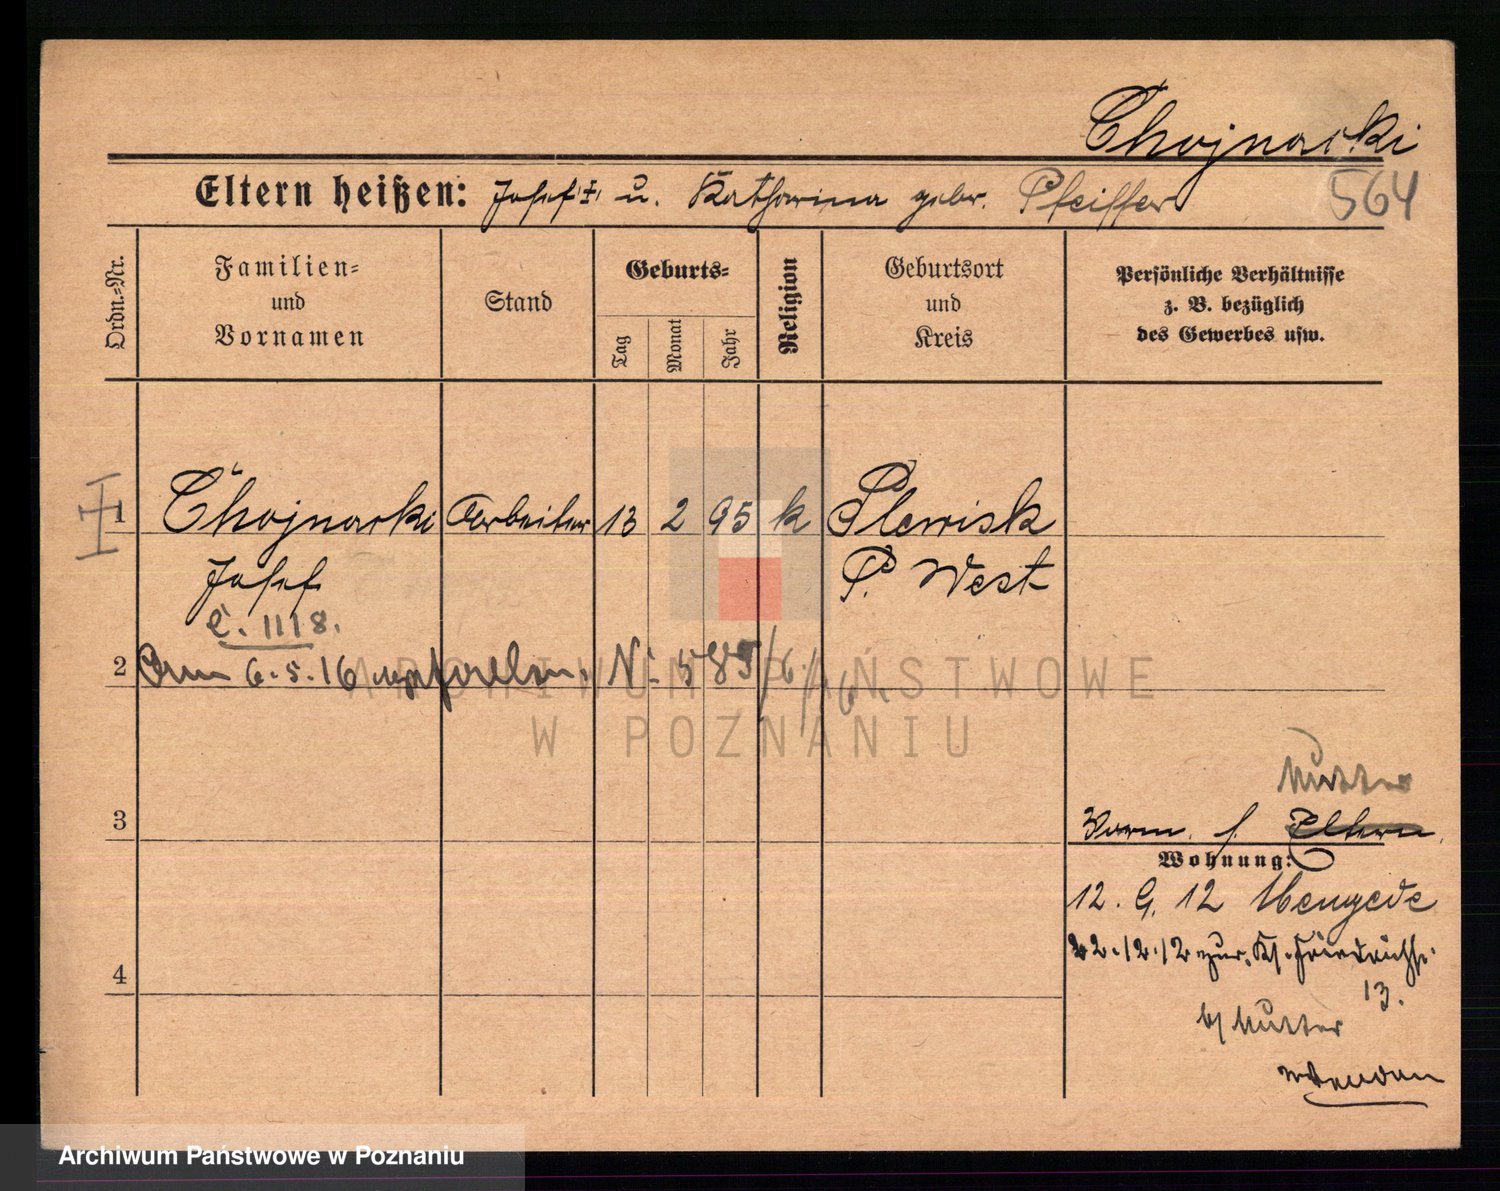 Chojnacki
Eltern heißen: Josef ‡ u. Katharina gebr. Pfeiffer
564
Ordn.-Nr.
Familien-
und
Vornamen
Stand
Geburts-
Tag
Monat
Jahr
Religion
Geburtsort
und
Kreis
Persönliche Verhältnisse
z. B. bezüglich
des Gewerbes usw.
1 Chojnacki Arbeiter 13 2 95 k Plewisk
Josef P. West
C. 1118.
2 Am 6.5.16 No 585/6/
ARCHIWUM PAŃSTWOWE
W POZNANIU
Mutter
3 Vorm. s. Eltern
Wohnung:
12. 9. 12 Mengede
22.12.12 zur. Kl.
4
13.
b/ Mutter
Archiwum Państwowe w Poznaniu